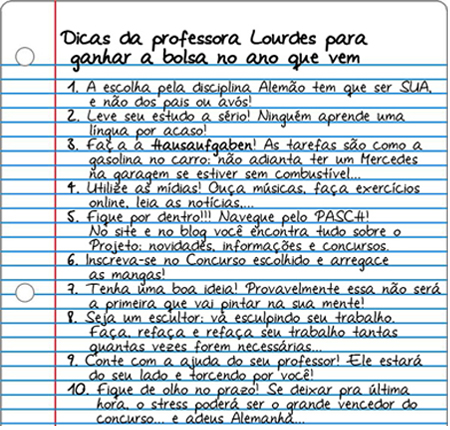 Dicas da professora Lourdes para
ganhar a bolsa no ano que vem
1. A escolha pela disciplina Alemão tem que ser SUA,
e não dos pais ou avós!
2. Leve seu estudo a sério! Ninguém aprende uma
língua por acaso!
3. Faça a Hausaufgaben! As tarefas são como a
gasolina no carro: não adianta ter um Mercedes
na garagem se estiver sem combustível...
4. Utilize as mídias! Ouça músicas, faça exercícios
online, leia as notícias,...
5. Fique por dentro!!! Navegue pelo PASCH!
No site e no blog você encontra tudo sobre o
Projeto: novidades, informações e concursos.
6. Inscreva-se no Concurso escolhido e arregace
as mangas!
7. Tenha uma boa ideia! Provavelmente essa não será
a primeira que vai pintar na sua mente!
8. Seja um escultor: vá esculpindo seu trabalho.
Faça, refaça e refaça seu trabalho tantas
quantas vezes forem necessárias...
9. Conte com a ajuda do seu professor! Ele estará
do seu lado e torcendo por você!
10. Fique de olho no prazo! Se deixar pra última
hora, o stress poderá ser o grande vencedor do
concurso... e adeus Alemanha...